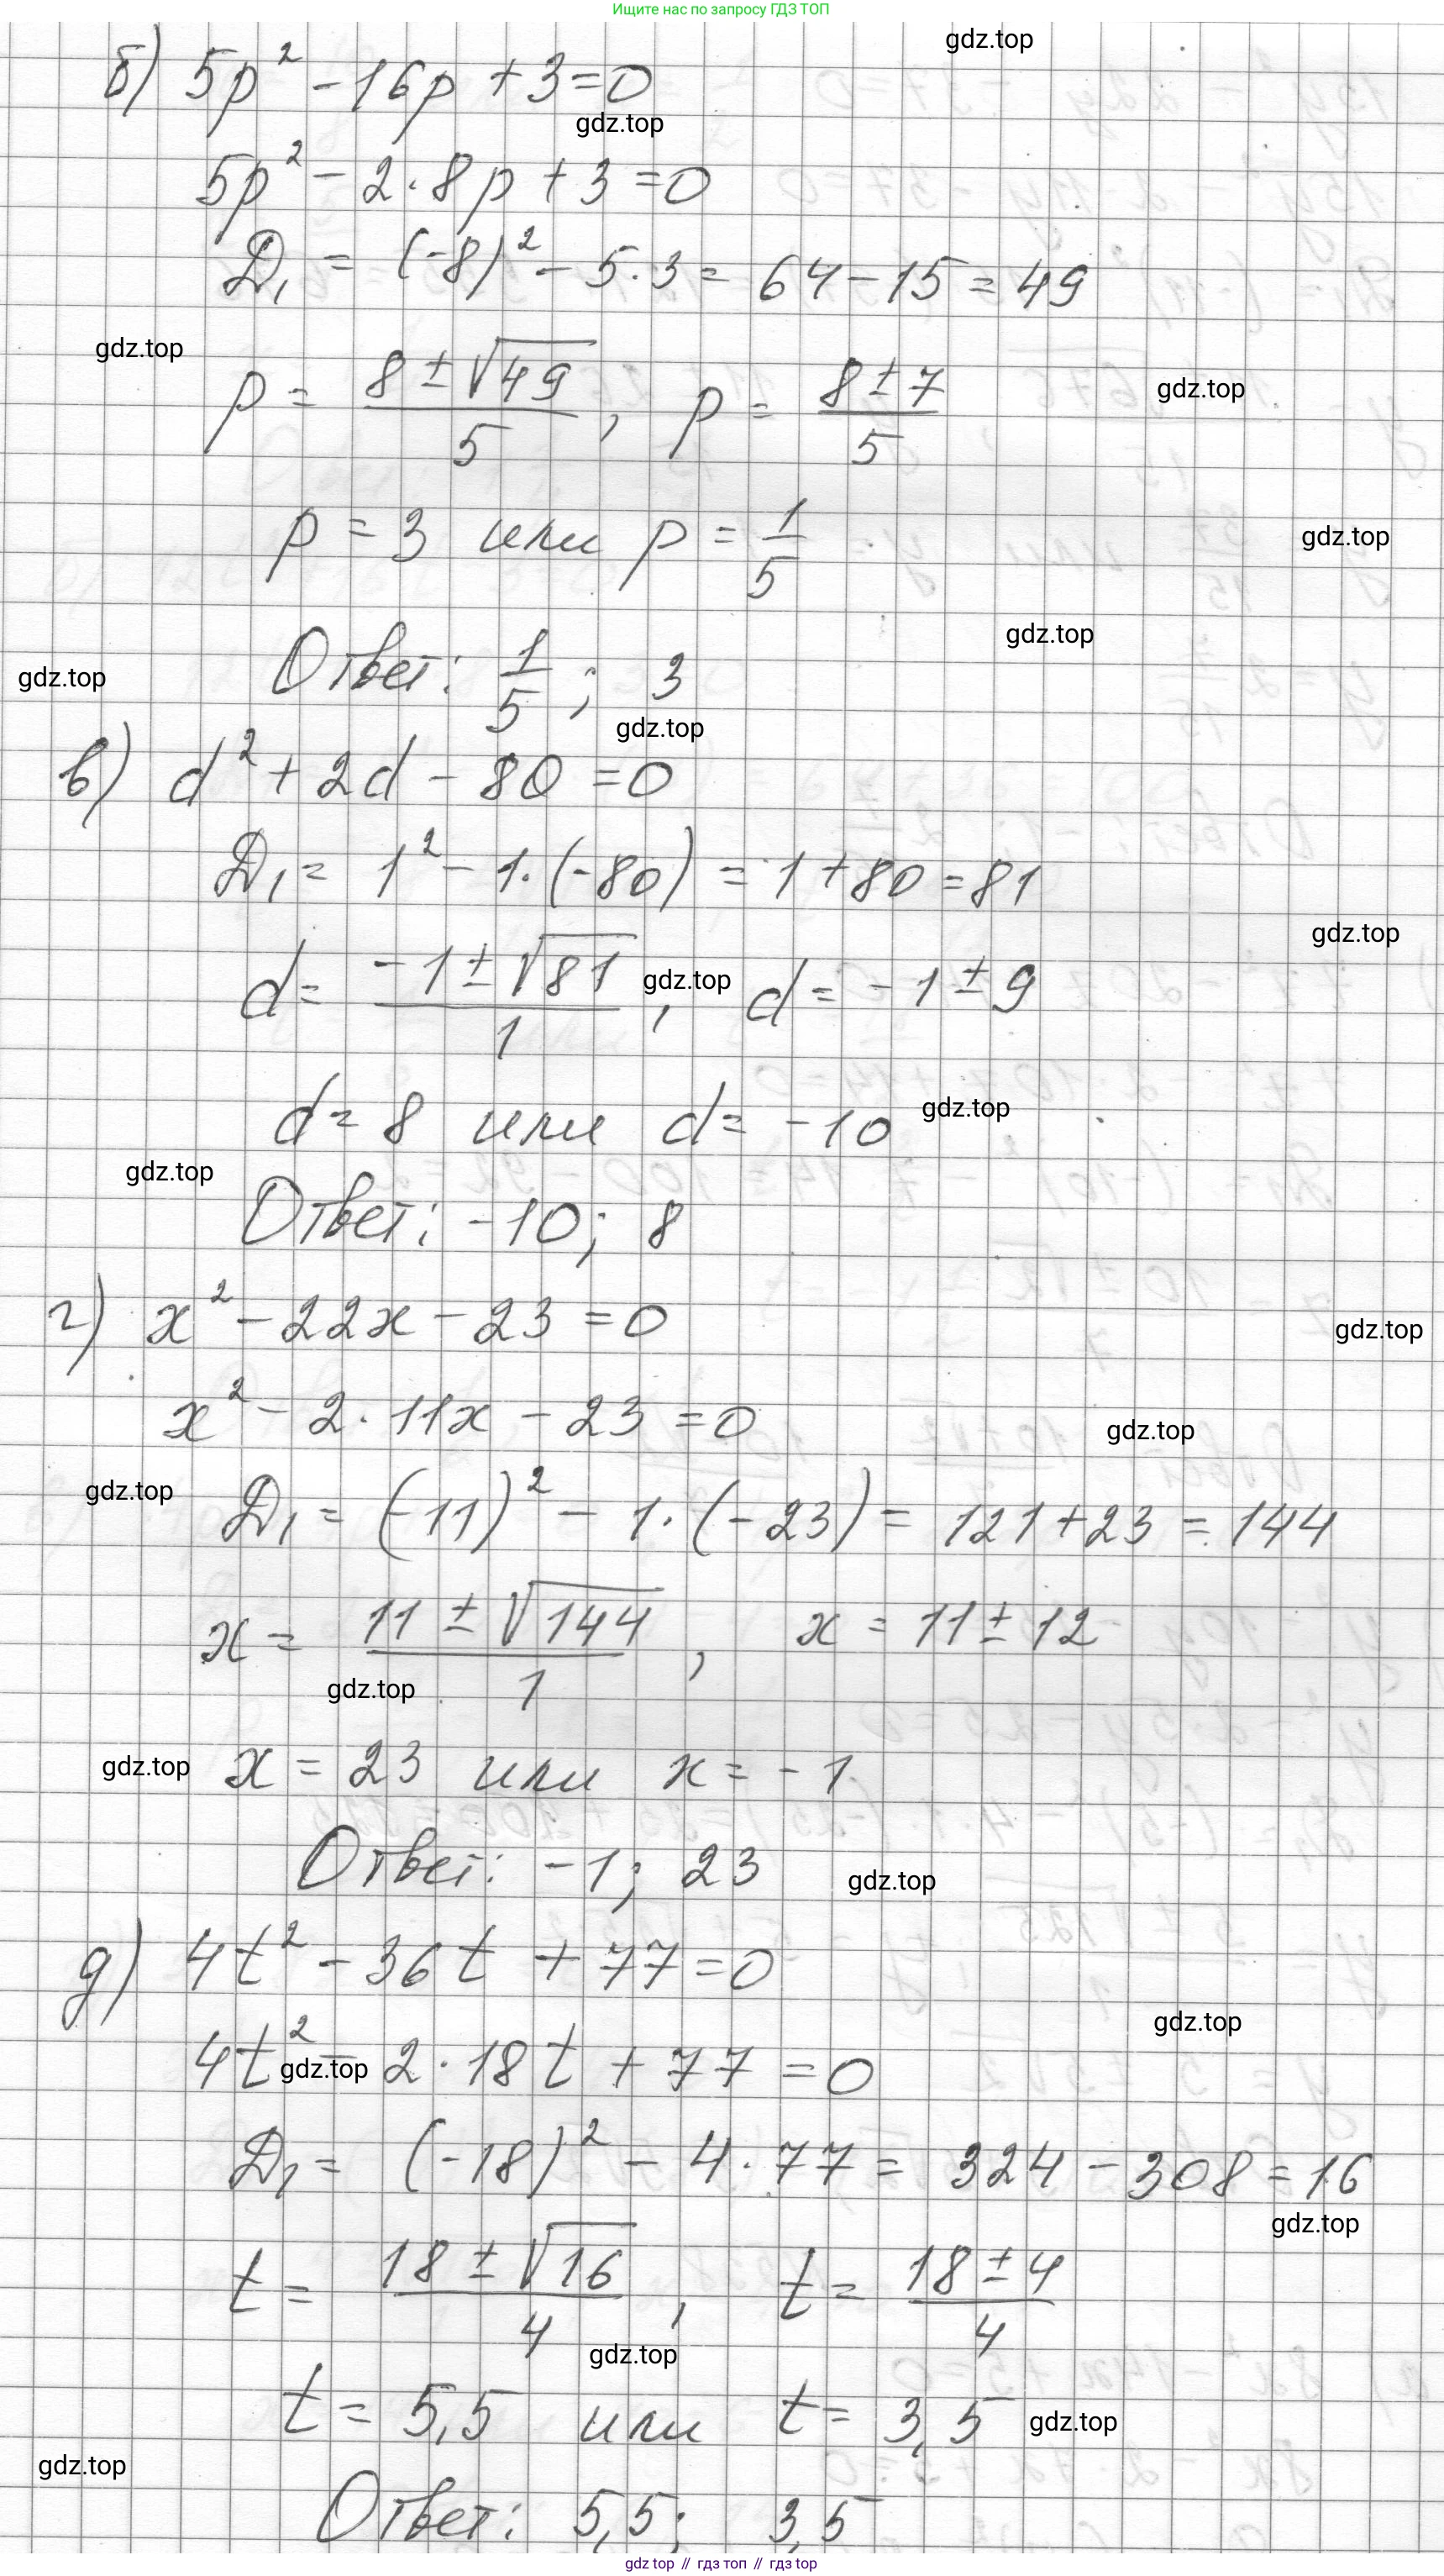 Ищите нас по запросу ГДЗ ТОП
gdz.top
б) 5p² - 16p + 3 = 0
gdz.top
5p² - 2·8p + 3 = 0
D₁ = (-8)² - 5·3 = 64 - 15 = 49
gdz.top
p = (8 ± √49)/5, p = (8 ± 7)/5
gdz.top
p = 3 или p = 1/5
gdz.top
gdz.top
Ответ: 1/5; 3
gdz.top
gdz.top
в) d² + 2d - 80 = 0
D₁ = 1² - 1·(-80) = 1 + 80 = 81
gdz.top
d = (-1 ± √81)/1, d = -1 ± 9
gdz.top
d = 8 или d = -10
gdz.top
gdz.top
Ответ: -10; 8
г) x² - 22x - 23 = 0
gdz.top
x² - 2·11x - 23 = 0
gdz.top
gdz.top
D₁ = (-11)² - 1·(-23) = 121 + 23 = 144
x = (11 ± √144)/1, x = 11 ± 12
gdz.top
gdz.top
x = 23 или x = -1
Ответ: -1; 23
gdz.top
д) 4t² - 36t + 77 = 0
gdz.top
4t² - 2·18t + 77 = 0
gdz.top
D₁ = (-18)² - 4·77 = 324 - 308 = 16
gdz.top
t = (18 ± √16)/4, t = (18 ± 4)/4
gdz.top
t = 5,5 или t = 3,5
gdz.top
gdz.top
Ответ: 5,5; 3,5
gdz top // гдз топ // gdz top